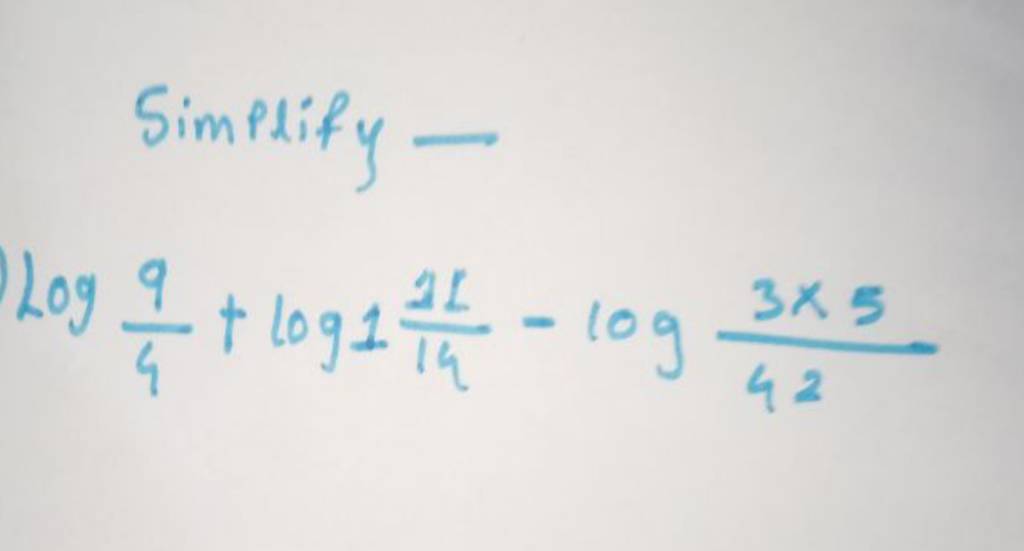 Simplify —
) Log 9/4 + log 1 11/14 - log 3×5/42